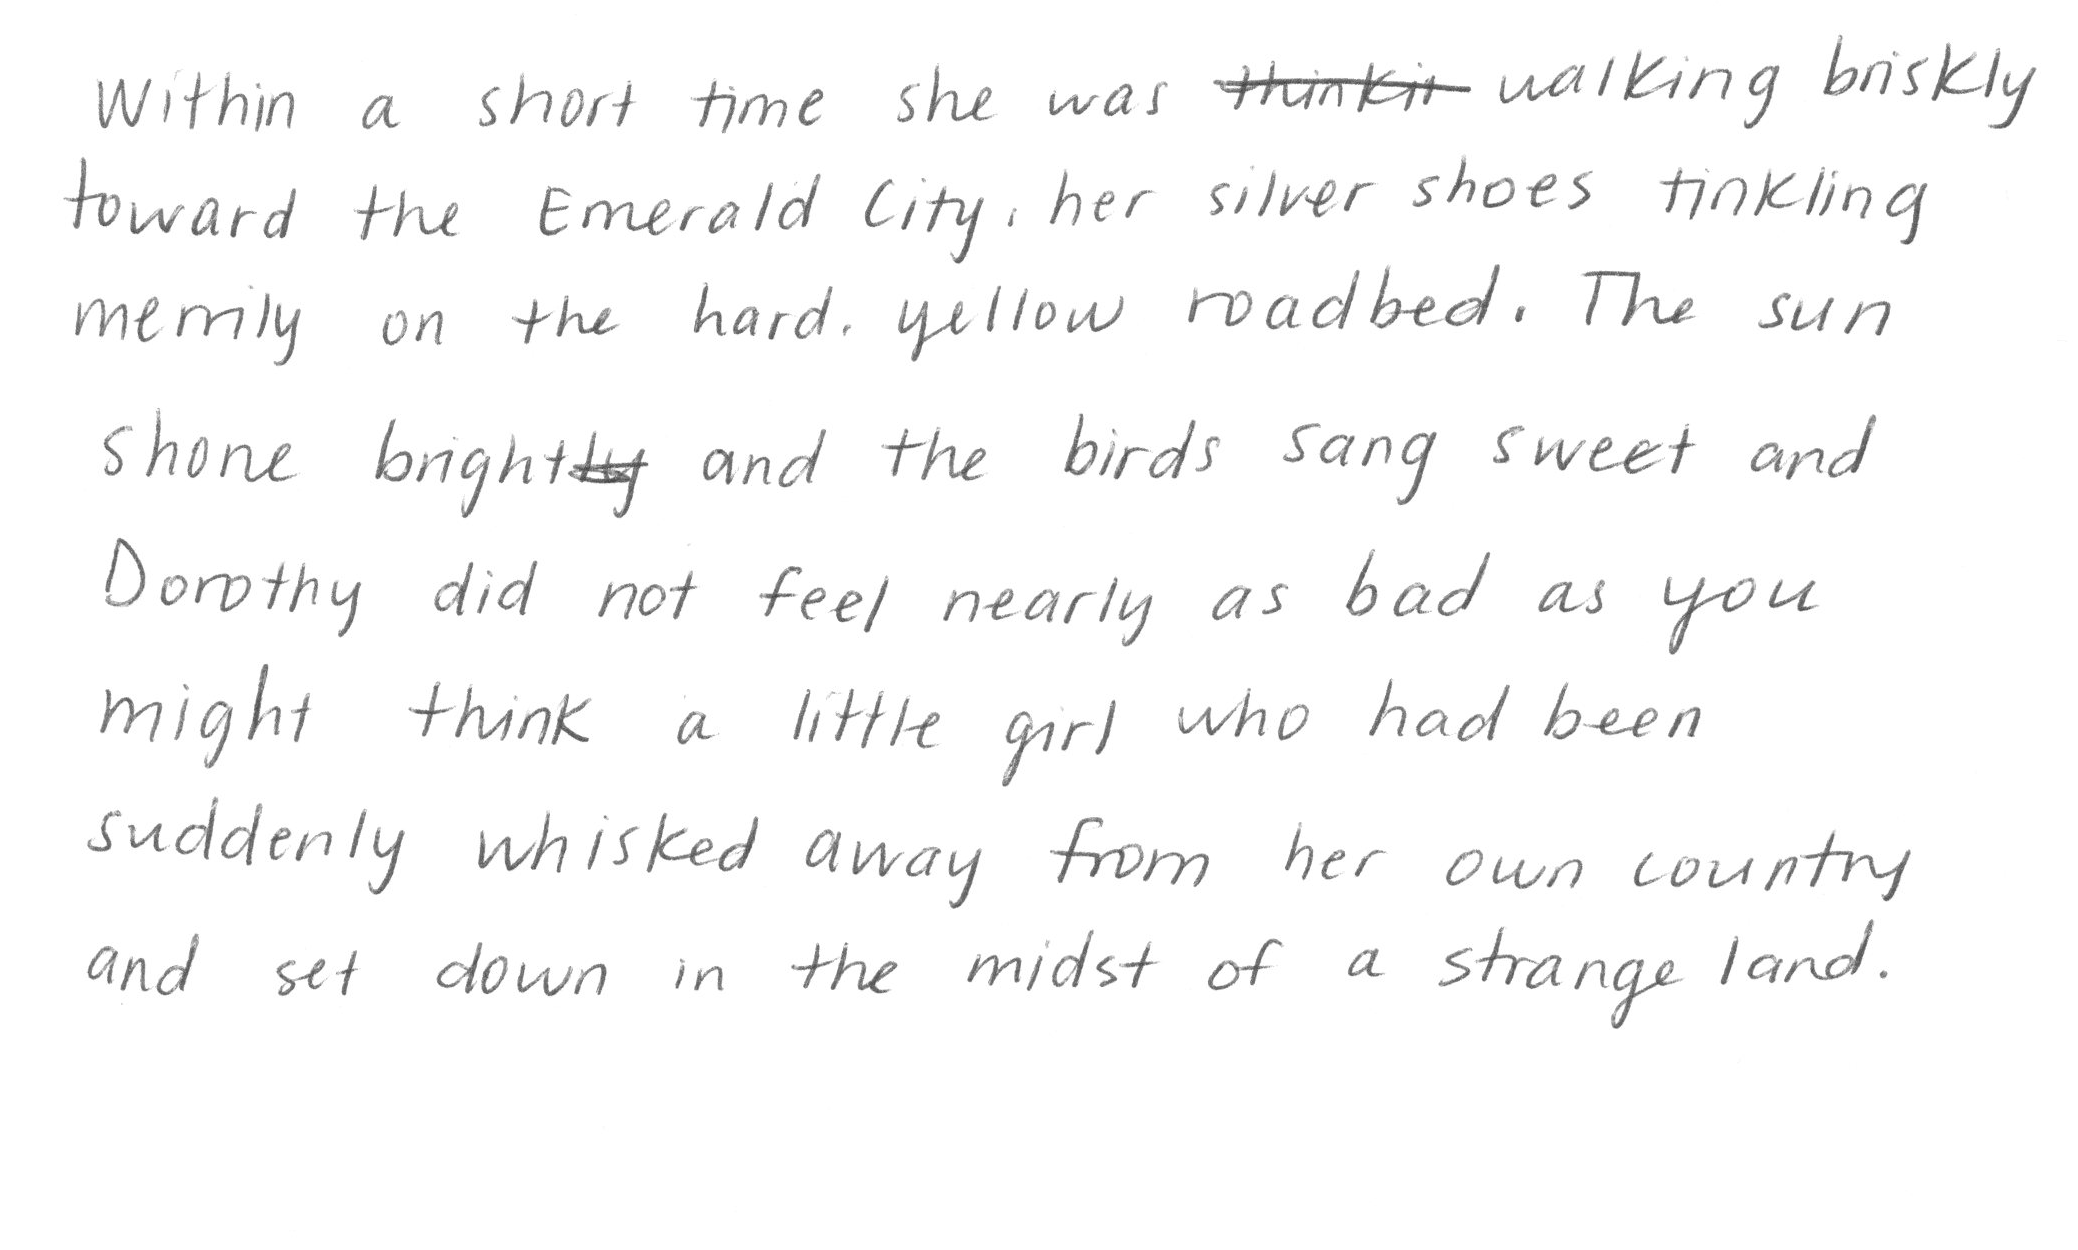 Within a short time she was thinkin walking briskly
toward the Emerald City, her silver shoes tinkling
merrily on the hard, yellow roadbed. The sun
shone brightly and the birds sang sweet and
Dorothy did not feel nearly as bad as you
might think a little girl who had been
suddenly whisked away from her own country
and set down in the midst of a strange land.